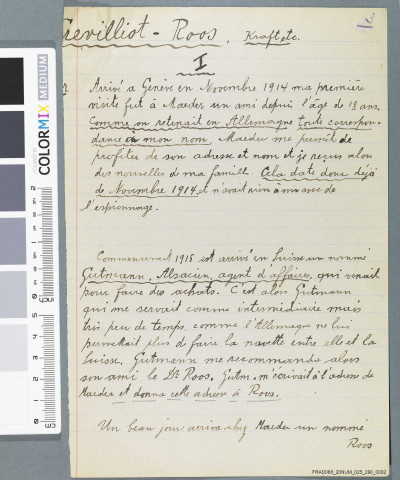 Crevilliot - Roos. Kraft etc.
I
Arrivé a Genève en Novembre 1914 ma première
visite fut à Maeder un ami depui l'âge de 18 ans.
Comme on retenait en Allemagne toute correspon-
dance à mon nom, Maeder me permit de
profiter de son adresse et nom et je reçus alors
des nouvelles de ma famille. Cela date donc déjà
de Novembre 1914 et n'avait rien à voir avec de
l'espionnage.
Commencement 1915 est arrivé en Suisse un nommé
Gutmann, Alsacien, agent d'affaires, qui venait
pour faire des achats. C'est alors Gutmann
qui me servait comme intermédiaire mais
très peu de temps, comme l'Allemagne ne lui
permettait plus de faire la navette entre elle et la
Suisse. Gutmann me recommanda alors
son ami le Dr Roos. Gutm. m'écrivait à l'adresse de
Maeder et donna cette adresse à Roos.
Un beau jour arriva chez Maeder un nommé
Roos
COLORMIX MEDIUM
FRAD068_20NUM_025_290_0002